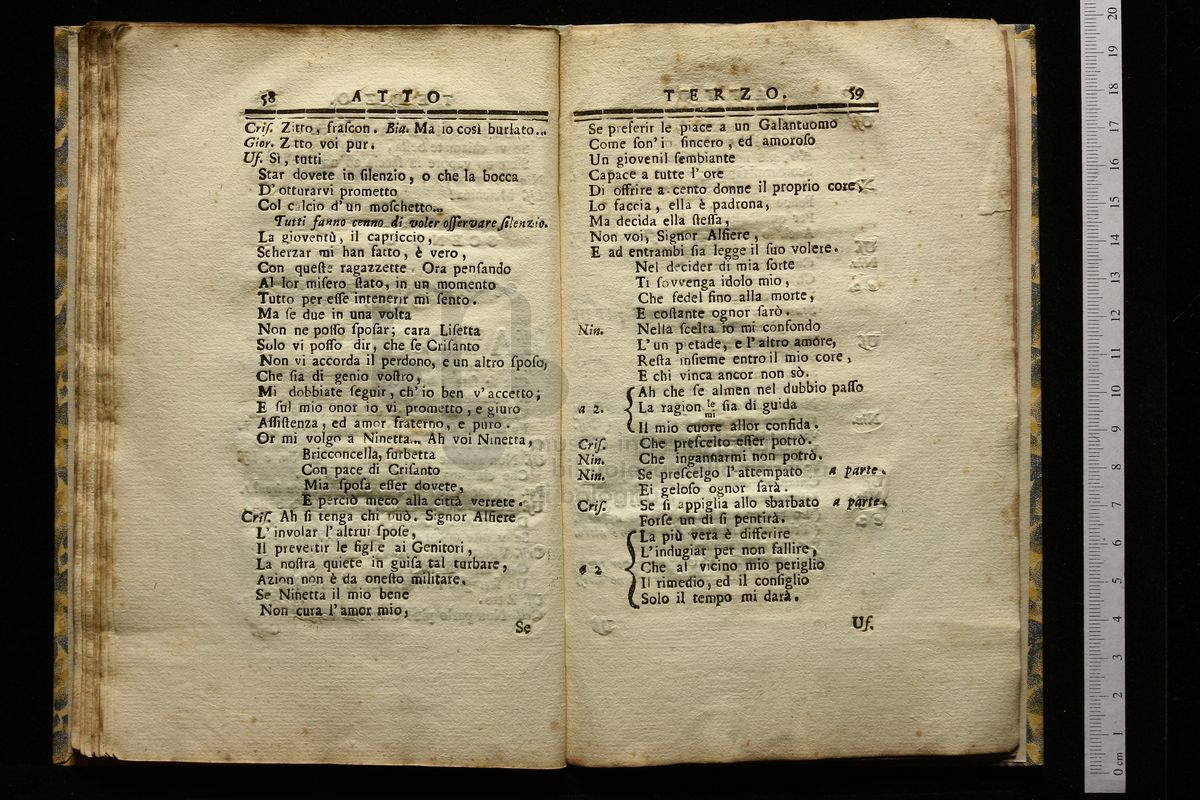 58 ATTO
Criſ. Zitto, fraſcon. Bia. Ma io così burlato...
Gior. Z tto voi pur.
Uf. Sì, tutti
Star dovete in ſilenzio, o che la bocca
D' otturarvi prometto
Col calcio d'un moſchetto...
Tutti fanno cenno di voler oſſervare ſilenzio.
La gioventù, il capriccio,
Scherzar mi han fatto, è vero,
Con queſte ragazzette. Ora penſando
Al lor miſero ſtato, in un momento
Tutto per eſſe intenerir mi ſento.
Ma ſe due in una volta
Non ne poſſo ſpoſar; cara Liſetta
Solo vi poſſo dir, che ſe Criſanto
Non vi accorda il perdono, e un altro ſpoſo,
Che ſia di genio voſtro,
Mi dobbiate ſeguir, ch'io ben v'accetto;
E ſul mio onor io vi prometto, e giuro
Aſſiſtenza, ed amor fraterno, e puro.
Or mi volgo a Ninetta... Ah voi Ninetta,
Bricconcella, furbetta
Con pace di Criſanto
Mia ſpoſa eſſer dovete,
E perciò meco alla città verrete.
Criſ. Ah ſi tenga chi può. Signor Alfiere
L'involar l'altrui ſpoſe,
Il prevertir le figlie ai Genitori,
La noſtra quiete in guiſa tal turbare,
Azion non è da oneſto militare.
Se Ninetta il mio bene
Non cura l'amor mio,
Se
TERZO. 59
Se preferir le piace a un Galantuomo
Come ſon'io ſincero, ed amoroſo
Un giovenil ſembiante
Capace a tutte l'ore
Di offrire a cento donne il proprio core,
Lo faccia, ella è padrona,
Ma decida ella ſteſſa,
Non voi, Signor Alfiere,
E ad entrambi ſia legge il ſuo volere.
Nel decider di mia ſorte
Ti ſovvenga idolo mio,
Che fedel fino alla morte,
E coſtante ognor ſarò.
Nin. Nella ſcelta io mi confondo
L'un pietade, e l'altro amore,
Reſta inſieme entro il mio core,
E chi vinca ancor non sò.
Ah che ſe almen nel dubbio paſſo
a 2. La ragion le mi ſia di guida
Il mio cuore allor confida.
Criſ. Che preſcelto eſſer potrò.
Nin. Che ingannarmi non potrò.
Nin. Se preſcelgo l'attempato a parte.
Ei geloſo ognor ſarà.
Criſ. Se ſi appiglia allo sbarbato a parte.
Forſe un dì ſi pentirà.
La più vera è differire
L'indugiar per non fallire,
a 2 Che al vicino mio periglio
Il rimedio, ed il conſiglio
Solo il tempo mi darà.
Uf.
0 cm 1 2 3 4 5 6 7 8 9 10 11 12 13 14 15 16 17 18 19 20